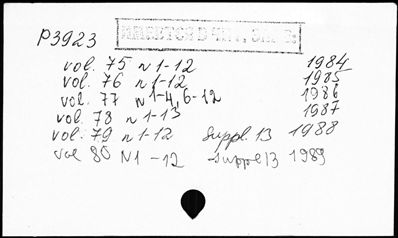 P3923
vol. 75 n 1-12 1984
vol. 76 n 1-12 1985
vol. 77 n 1-4, 6-12 1986
vol. 78 n 1-13 1987
vol. 79 n 1-12 Suppl. 13 1988
vol 80 N1-12 suppl 13 1989